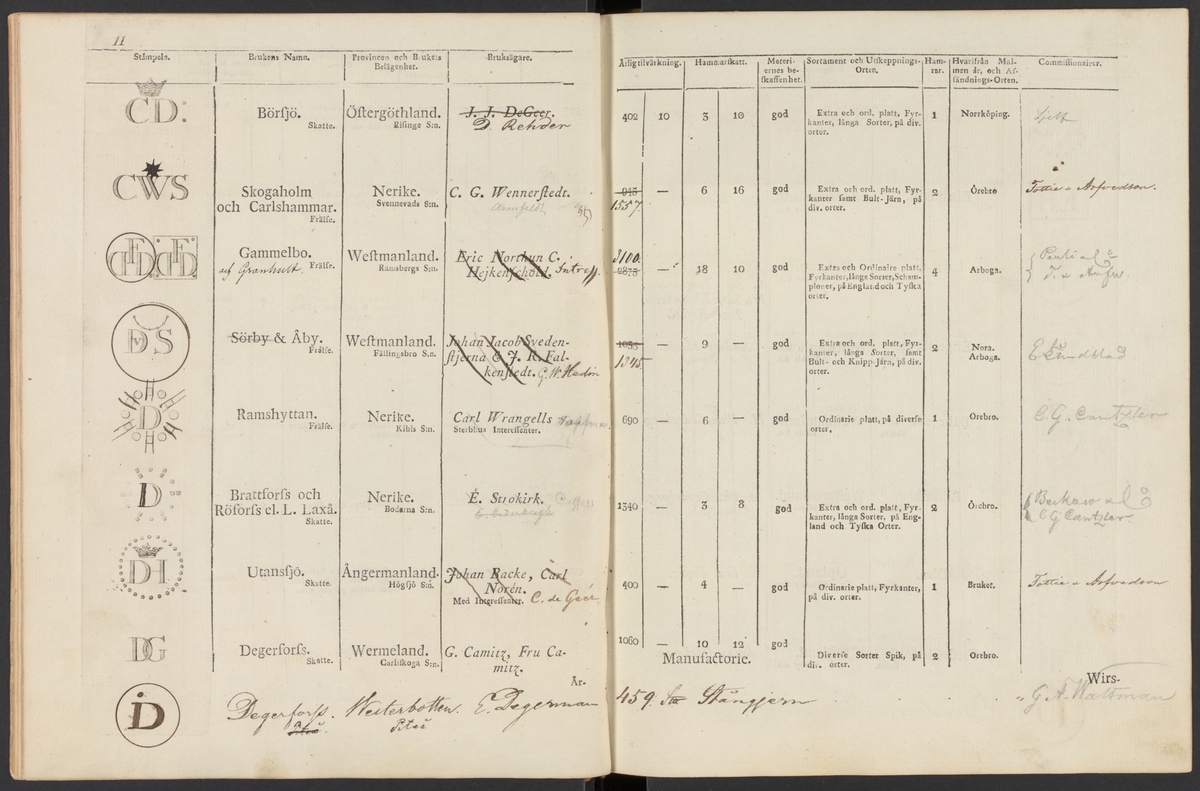 11
Stämpeln. Brukens Namn. Provincen och Brukets Belägenhet. Bruksägare. Årlig tilvärkning. Hammarskatt. Materiernes beskaffenhet. Sortament och Utskeppnings-Orten. Hamrar. Hvarifrån Malmen är, och Afsändnings-Orten. Commissionairer.
CD: Börsjö. Östergöthland. J. J. DeGeer. 402 10 3 10 god Extra och ord. platt, Fyr- 1 Norrköping.
Skatte. Risinge S:n. D. Rehder kanter, långa Sorter, på div.
orter.
CWS Skogaholm Nerike. C. G. Wennerstedt. 945 — 6 16 god Extra och ord. platt, Fyr- 2 Örebro Tottie & Arfvedson.
och Carlshammar. Svennevads S:n. Armfeldt 1557. kanter samt Bult-Järn, på
Frälse. div. orter.
Gammelbo. Westmanland. Eric Northun C. 3100. 18 10 god Extra och Ordinaire platt, 4 Arboga.
Frälse. Ramsbergs S:n. Hejkenschöld. Intress. 2875 — Fyrkanter, långa Sorter, Scham-
af Granhult. ploner, på England och Tyska
orter.
DVS Sörby & Åby. Westmanland. Johan Jacob Sveden- 1035 — 9 — god Extra och ord. platt, Fyr- 2 Nora.
Frälse. Fällingsbro S:n. stjerna & J. R. Fal- 1345. kanter, långa Sorter, samt Arboga. Lundblad
kenstedt. G. W. Hedin Bult- och Knipp-Järn, på div.
orter.
D Ramshyttan. Nerike. Carl Wrangells 690 — 6 — god Ordinarie platt, på diverse 1 Örebro. C. G. Cantzler
Frälse. Kihls S:n. Sterbhus Interessenter. orter.
D Brattforss och Nerike. E. Strokirk. 1340 — 3 8 god Extra och ord. platt, Fyr- 2 Örebro.
Röforss el. L. Laxå. Bodarna S:n. kanter, långa Sorter, på Eng- C G Cantzler
Skatte. land och Tyska Orter.
DH Utansjö. Ångermanland. Johan Racke, Carl 400 — 4 — god Ordinarie platt, Fyrkanter, 1 Bruket. Tottie & Arfvedson
Skatte. Högsjö S:n. Norén. på div. orter.
Med Interessenter. C. de Geer.
DG Degerforss. Wermeland. G. Camitz, Fru Ca- 1060 — 10 12 god Diverse Sorter Spik, på 2 Örebro.
Skatte. Carlskoga S:n. mitz. Manufactorie. div. orter.
Är- Wirs-
D Degerforss. Westerbotten. E. Degerman 459. Stångjern G. A. Wattman
Piteå Piteå